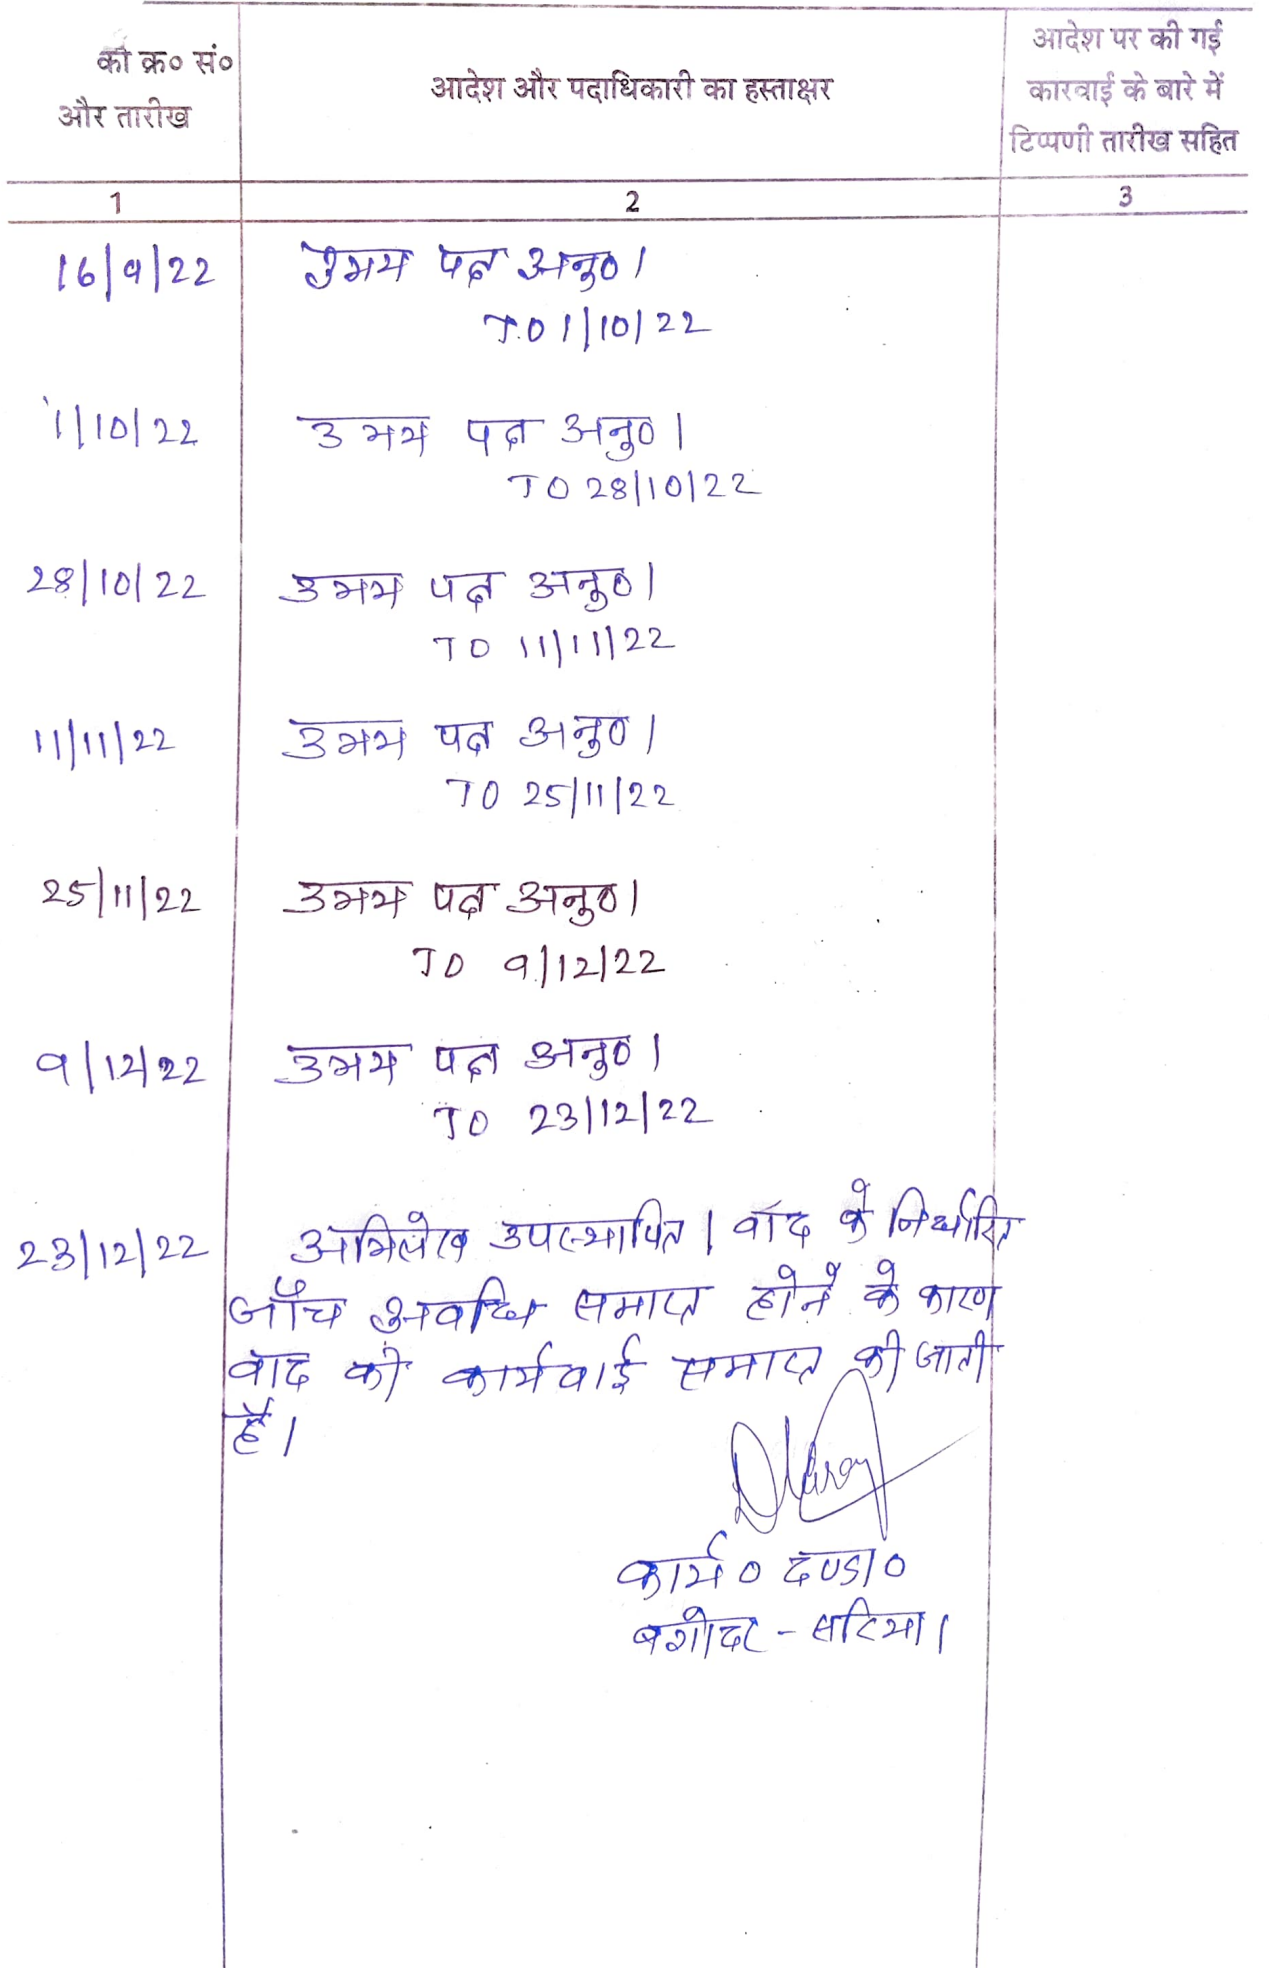 की क्र० सं०
और तारीख
आदेश और पदाधिकारी का हस्ताक्षर
आदेश पर की गई
कारवाई के बारे में
टिप्पणी तारीख सहित
1
2
3
16/9/22
उभय पक्ष अनु०।
TO 1/10/22
1/10/22
उभय पक्ष अनु०।
TO 28/10/22
28/10/22
उभय पक्ष अनु०।
TO 11/11/22
11/11/22
उभय पक्ष अनु०।
TO 25/11/22
25/11/22
उभय पक्ष अनु०।
TO 9/12/22
9/12/22
उभय पक्ष अनु०।
TO 23/12/22
23/12/22
अभिलेख उपस्थापित। वाद के निर्धारित
जाँच अवधि समाप्त होने के कारण
वाद की कार्यवाई समाप्त की जाती
है।
कार्य० दण्डा०
बगोदर - सरिया।